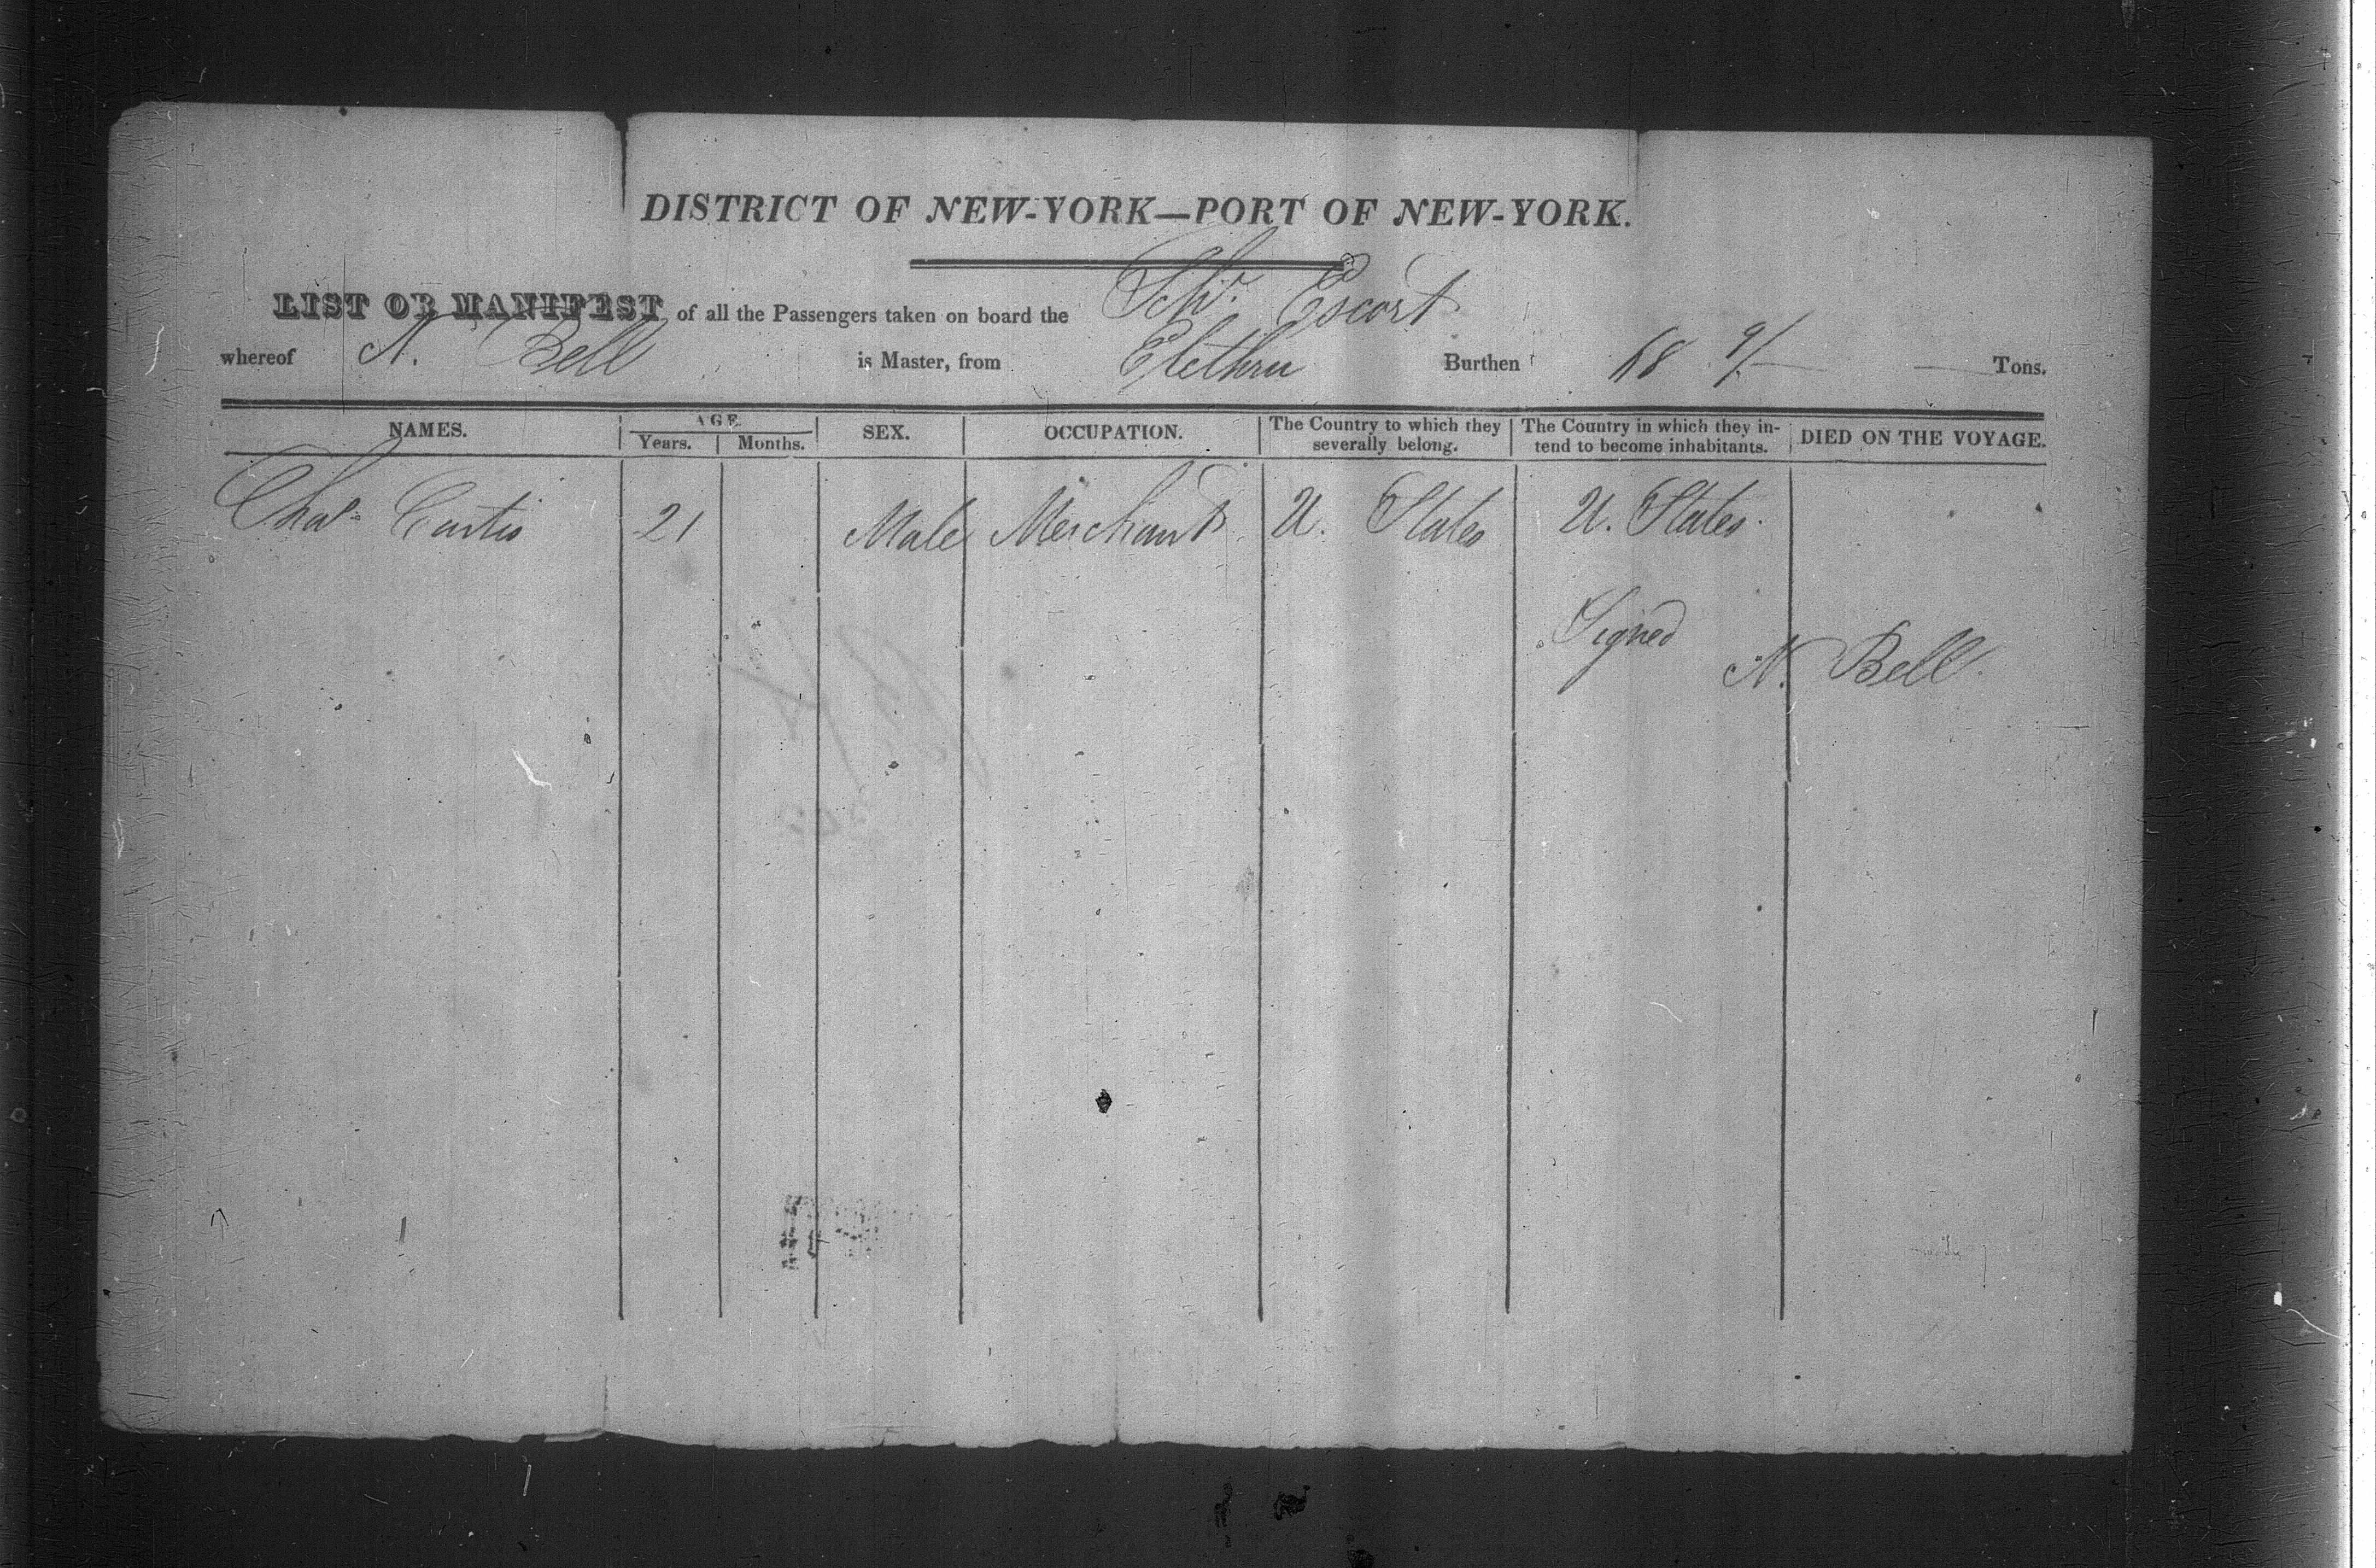 DISTRICT OF NEW-YORK—PORT OF NEW-YORK.
LIST OR MANIFEST of all the Passengers taken on board the Schr. Escort
whereof N. Bell is Master, from Elethru Burthen 68 Tons.
NAMES. AGE. Years. Months. SEX. OCCUPATION. The Country to which they severally belong. The Country in which they intend to become inhabitants. DIED ON THE VOYAGE.
Chas. Curtis 21 Male Merchant U. States U. States.
Signed
N. Bell